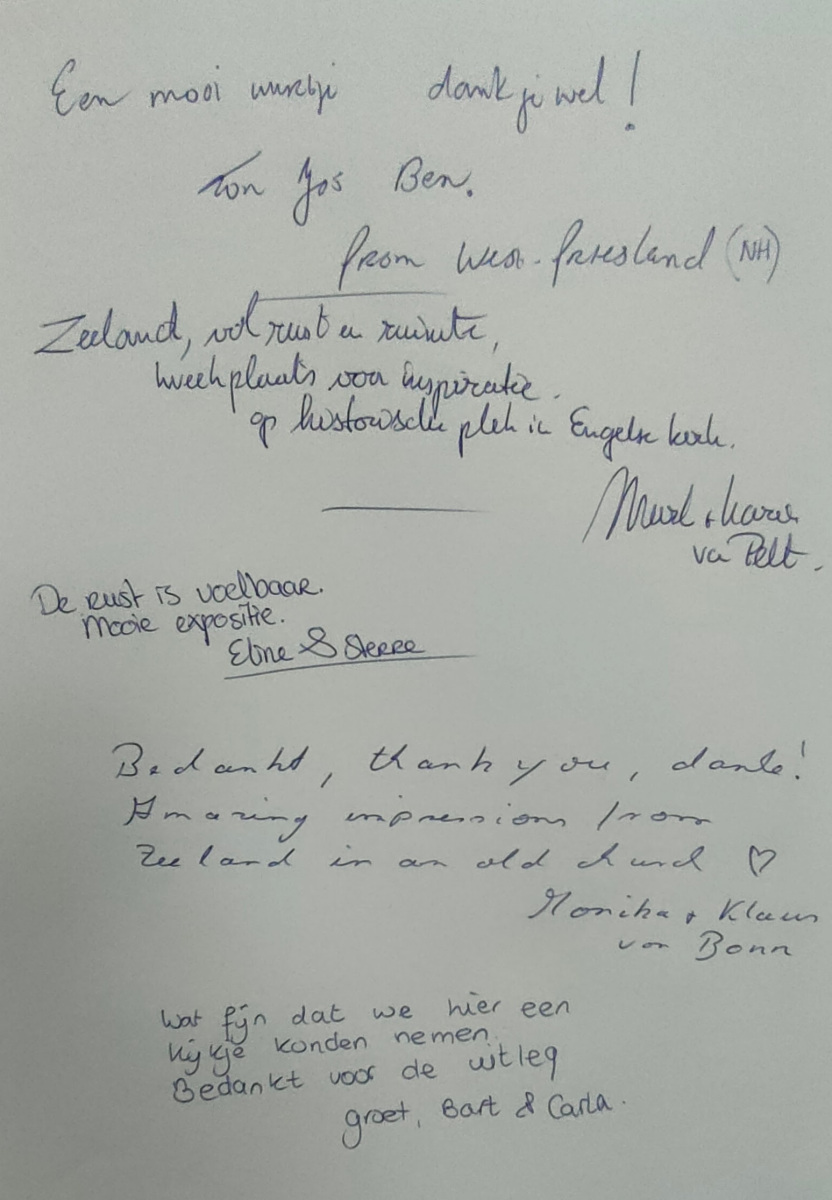 Een mooi dankjewel!
Ton Jos Ben.
from West-friesland (NH)
Zeeland, vol rust en ruimte,
kweekplaats voor inspiratie.
op historische plek in Engelse kerk.
van Pelt.
De rust is voelbaar.
Mooie expositie.
Eline & Sterre
Bedankt, thank you, danke!
Amazing impressions from
Zeeland in an old church ♡
Monika + Klaus
von Bonn
Wat fijn dat we hier een
kijkje konden nemen.
Bedankt voor de uitleg
groet, Bart & Carla.